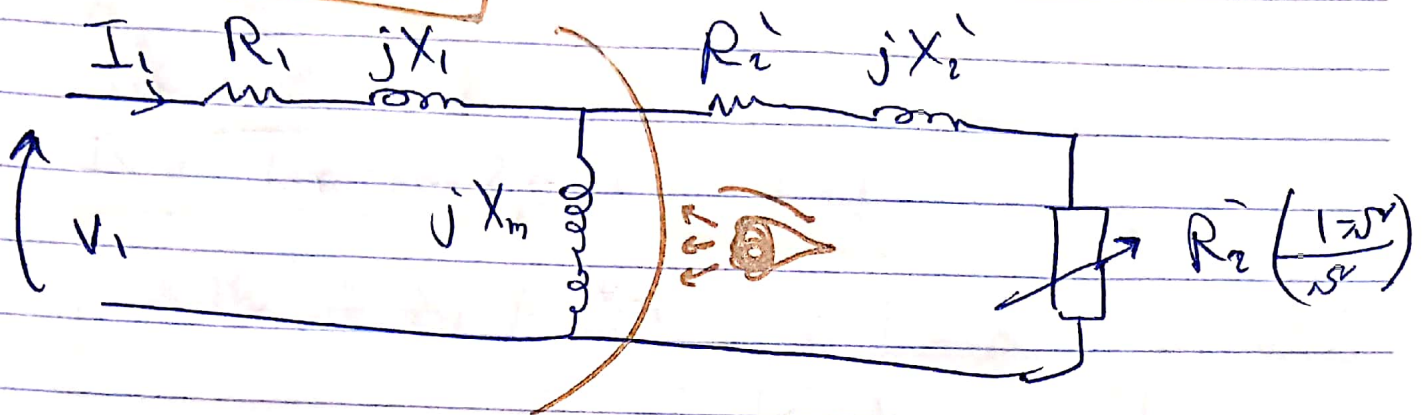 I₁ R₁ jX₁ R₂` jX₂`
V₁ jXₘ R₂` (1-s/s)